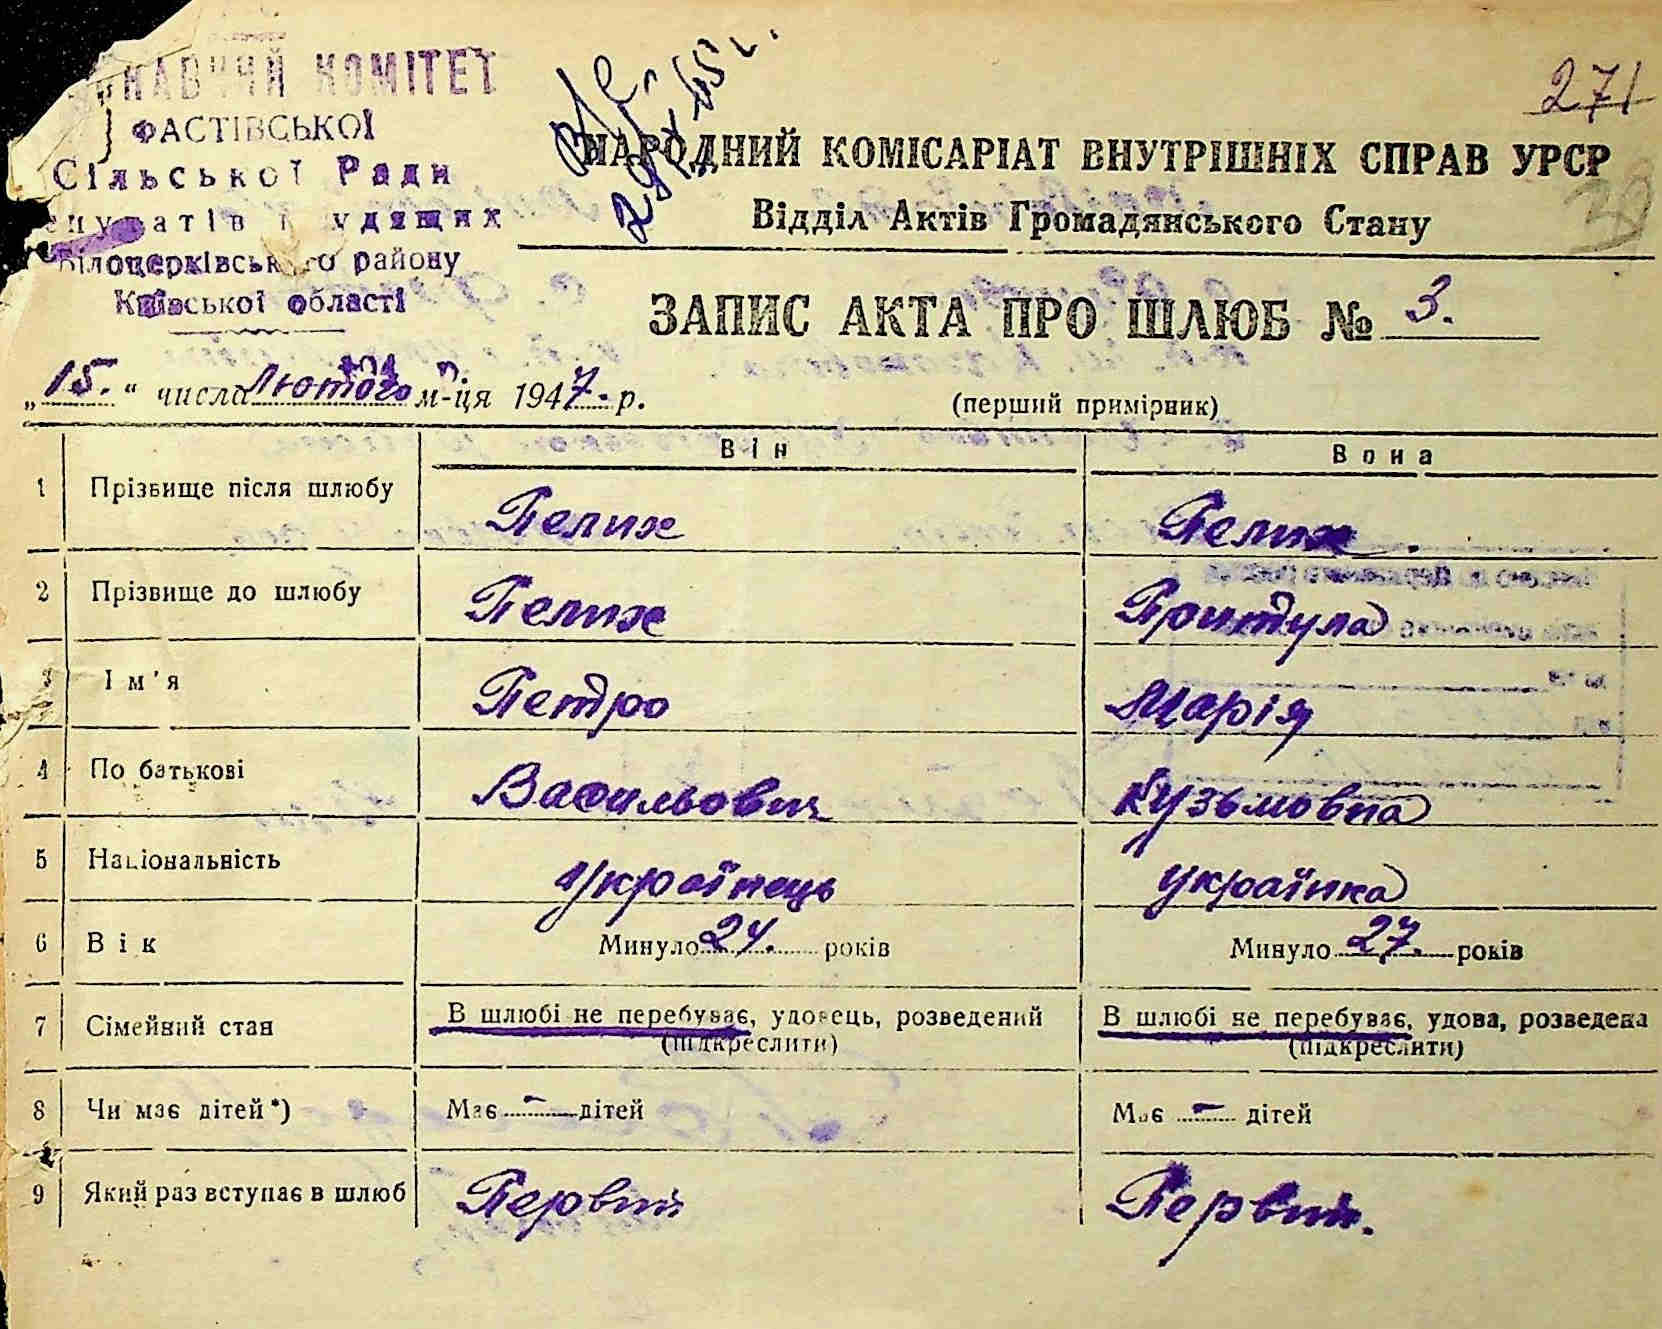 НАВЧИЙ КОМІТЕТ
ФАСТІВСЬКОЇ
Сільської Ради
Білоцерківського району
Київської області
271
НАРОДНИЙ КОМІСАРІАТ ВНУТРІШНІХ СПРАВ УРСР
Відділ Актів Громадянського Стану
ЗАПИС АКТА ПРО ШЛЮБ № 3.
„15.“ числа Лютого м-ця 1947. р.
(перший примірник)
Він Вона
1 Прізвище після шлюбу Пелих Пелих.
2 Прізвище до шлюбу Пелих Притула
3 Ім'я Петро Марія
4 По батькові Васильович Кузьмовна
5 Національність Українець українка
6 Вік Минуло 24. років Минуло 27. років
7 Сімейний стан В шлюбі не перебуває, удовець, розведений В шлюбі не перебуває, удова, розведена
(підкреслити) (підкреслити)
8 Чи має дітей*) Має - дітей Має - дітей
9 Який раз вступає в шлюб Первий Первий.